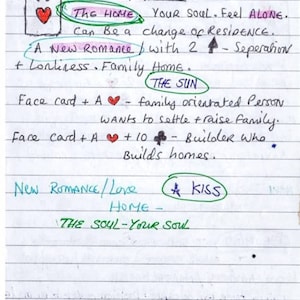 The Home. Your Soul. Feel Alone.
Can be a change of Residence.
A New Romance / with 2 ♠ - Seperation
+ Lonliness. Family Home.
The Sun
Face card + A ♥ - family orientated Person
wants to settle + raise family.
Face card + A ♥ + 10 ♣ - Builder who
builds homes.
New Romance/Love A Kiss
Home -
The Soul - Your Soul